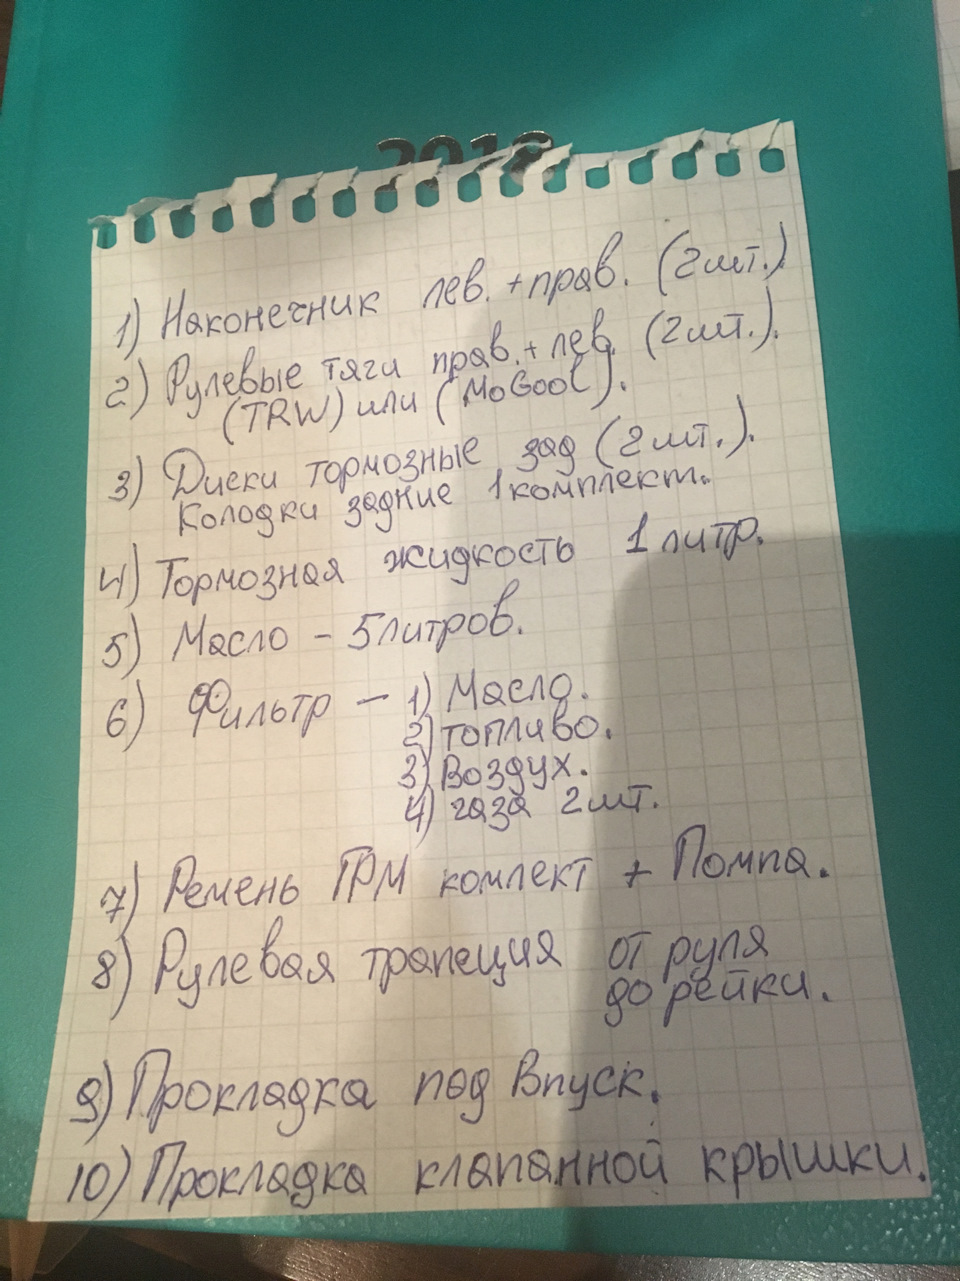 2018
1) Наконечник лев. + прав. (2шт.)
2) Рулевые тяги прав. + лев. (2шт.).
(TRW) или (MoGooL).
3) Диски тормозные зад (2шт.).
Колодки задние 1 комплект.
4) Тормозная жидкость 1 литр.
5) Масло – 5 литров.
6) Фильтр – 1) Масло.
2) топливо.
3) Воздух.
4) газа 2шт.
7) Ремень ГРМ комлект + Помпа.
8) Рулевая трапеция от руля
до рейки.
9) Прокладка под Впуск.
10) Прокладка клапанной крышки.